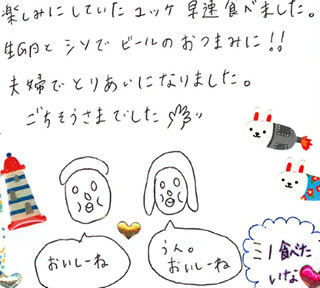 楽しみにしていたユッケ 早速食べました。
生卵とシソでビールのおつまみに!!
夫婦でとりあいになりました。
ごちそうさまでした
おいしーね
うん。
おいしーね
ミノ食べた
いな